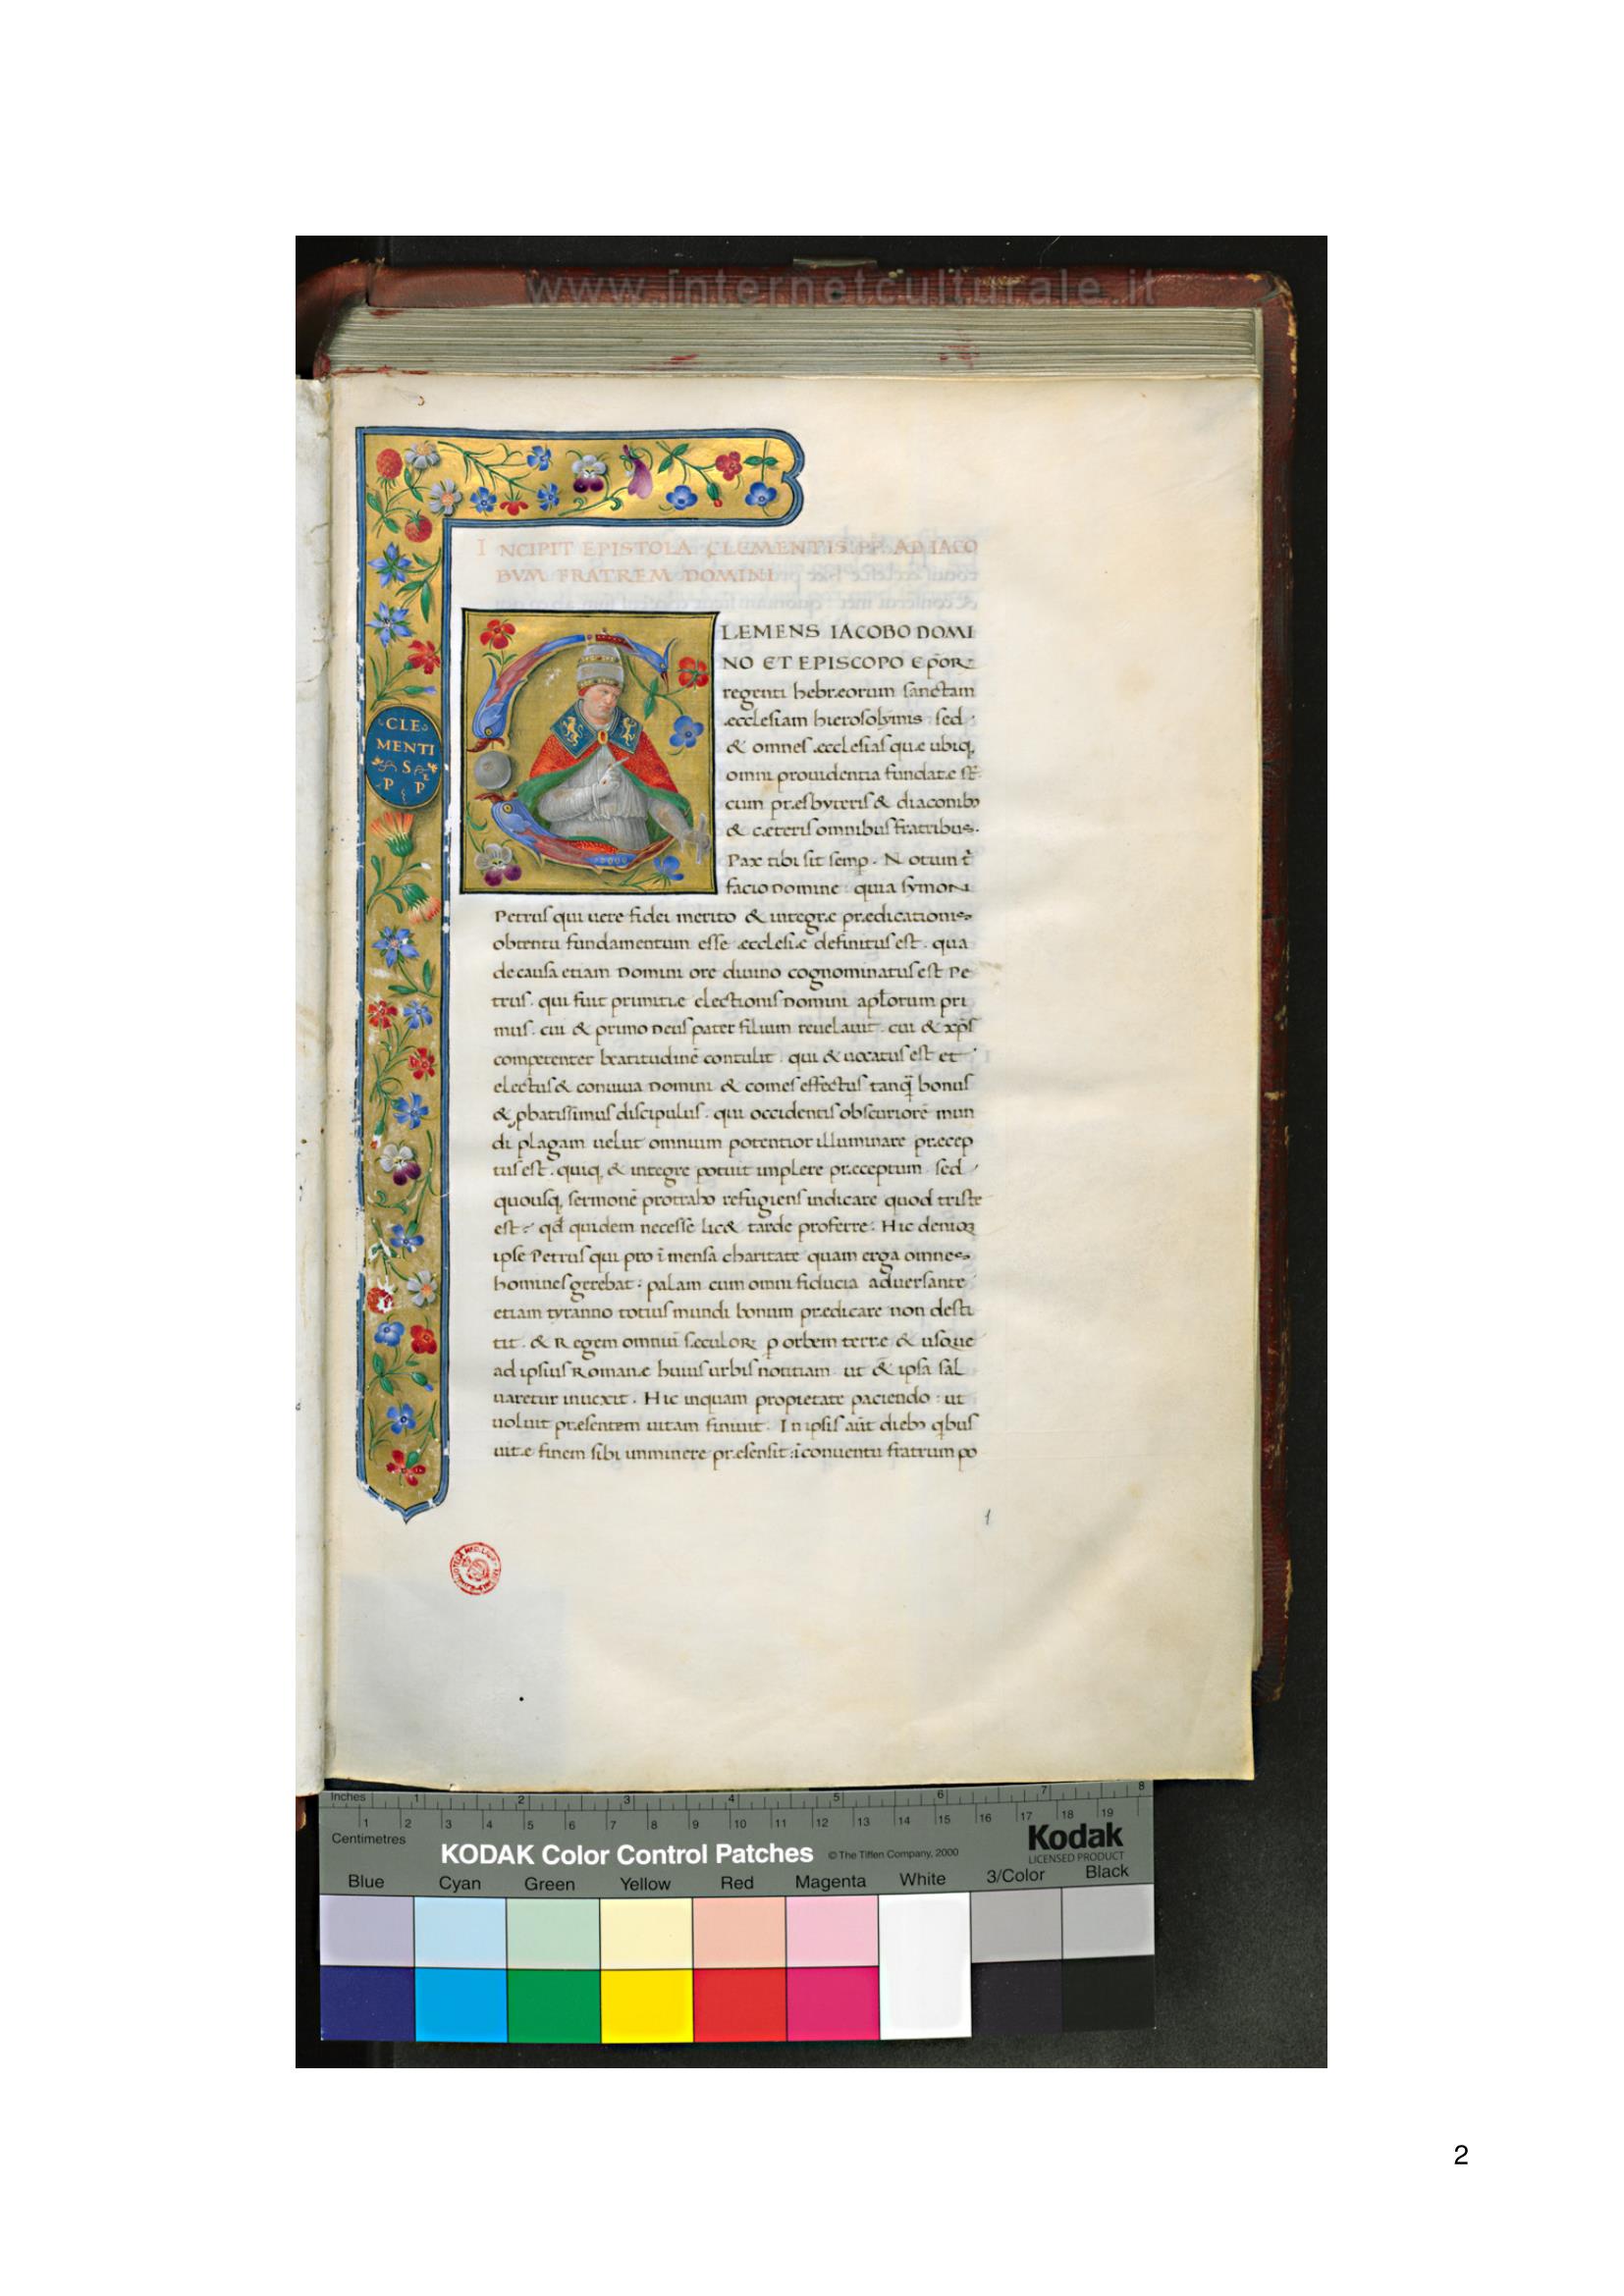 www.internetculturale.it
INCIPIT EPISTOLA CLEMENTIS. PP. AD IACO
BVM FRATREM DOMINI
CLE
MENTI
S
P P
LEMENS IACOBO DOMI
NO ET EPISCOPO EP̃OR
regenti hebræorum sanctam
æcclesiam hierosolymis sed
& omnes æcclesias quæ ubiq,
omni prouidentia fundatæ st̃
cum præsbyteris & diaconib;
& cæteris omnibus fratribus.
Pax tibi sit semp. Notum t̃
facio domine: quia symon
Petrus qui uere fidei merito & integræ prædicationis
obtentu fundamentum esse æcclesiæ definitus est. qua
de causa etiam Domini ore diuino cognominatus est Pe
trus. qui fuit primitiæ electionis Domini apl̃orum pri
mus. cui & primo Deus pater filium reuelauit. cui & xp̃s
competenter beatitudinẽ contulit. qui & uocatus est et
electus & conuiua Domini & comes effectus tanq̃ bonus
& ꝓbatissimus discipulus. qui occidentis obscuriorẽ mun
di plagam uelut omnium potentior illuminare præcep
tus est. quiq, & integre potuit implere præceptum. sed
quousq, sermonẽ protraho refugiens indicare quod triste
est? qd̃ quidem necesse lic& tarde proferre. Hic deniq;
ipse Petrus qui pro ĩmensa charitate quam erga omnes
homines gerebat: palam cum omni fiducia aduersante
etiam tyranno totius mundi bonum prædicare non desti
tit. & Regem omniũ sæculoꝝ ꝑ orbem terræ & usque
ad ipsius Romanæ huius urbis notitiam. ut & ipsa sal
uaretur inuexit. Hic inquam propietate paciendo: ut
uoluit præsentem uitam finiuit. In ipsis aũt dieb; qbus
uitæ finem sibi imminere præsensit: ĩ conuentu fratrum po
1
Inches 1 2 3 4 5 6 7 8
1 2 3 4 5 6 7 8 9 10 11 12 13 14 15 16 17 18 19
Centimetres
KODAK Color Control Patches © The Tiffen Company, 2000 Kodak
LICENSED PRODUCT
Blue Cyan Green Yellow Red Magenta White 3/Color Black
2